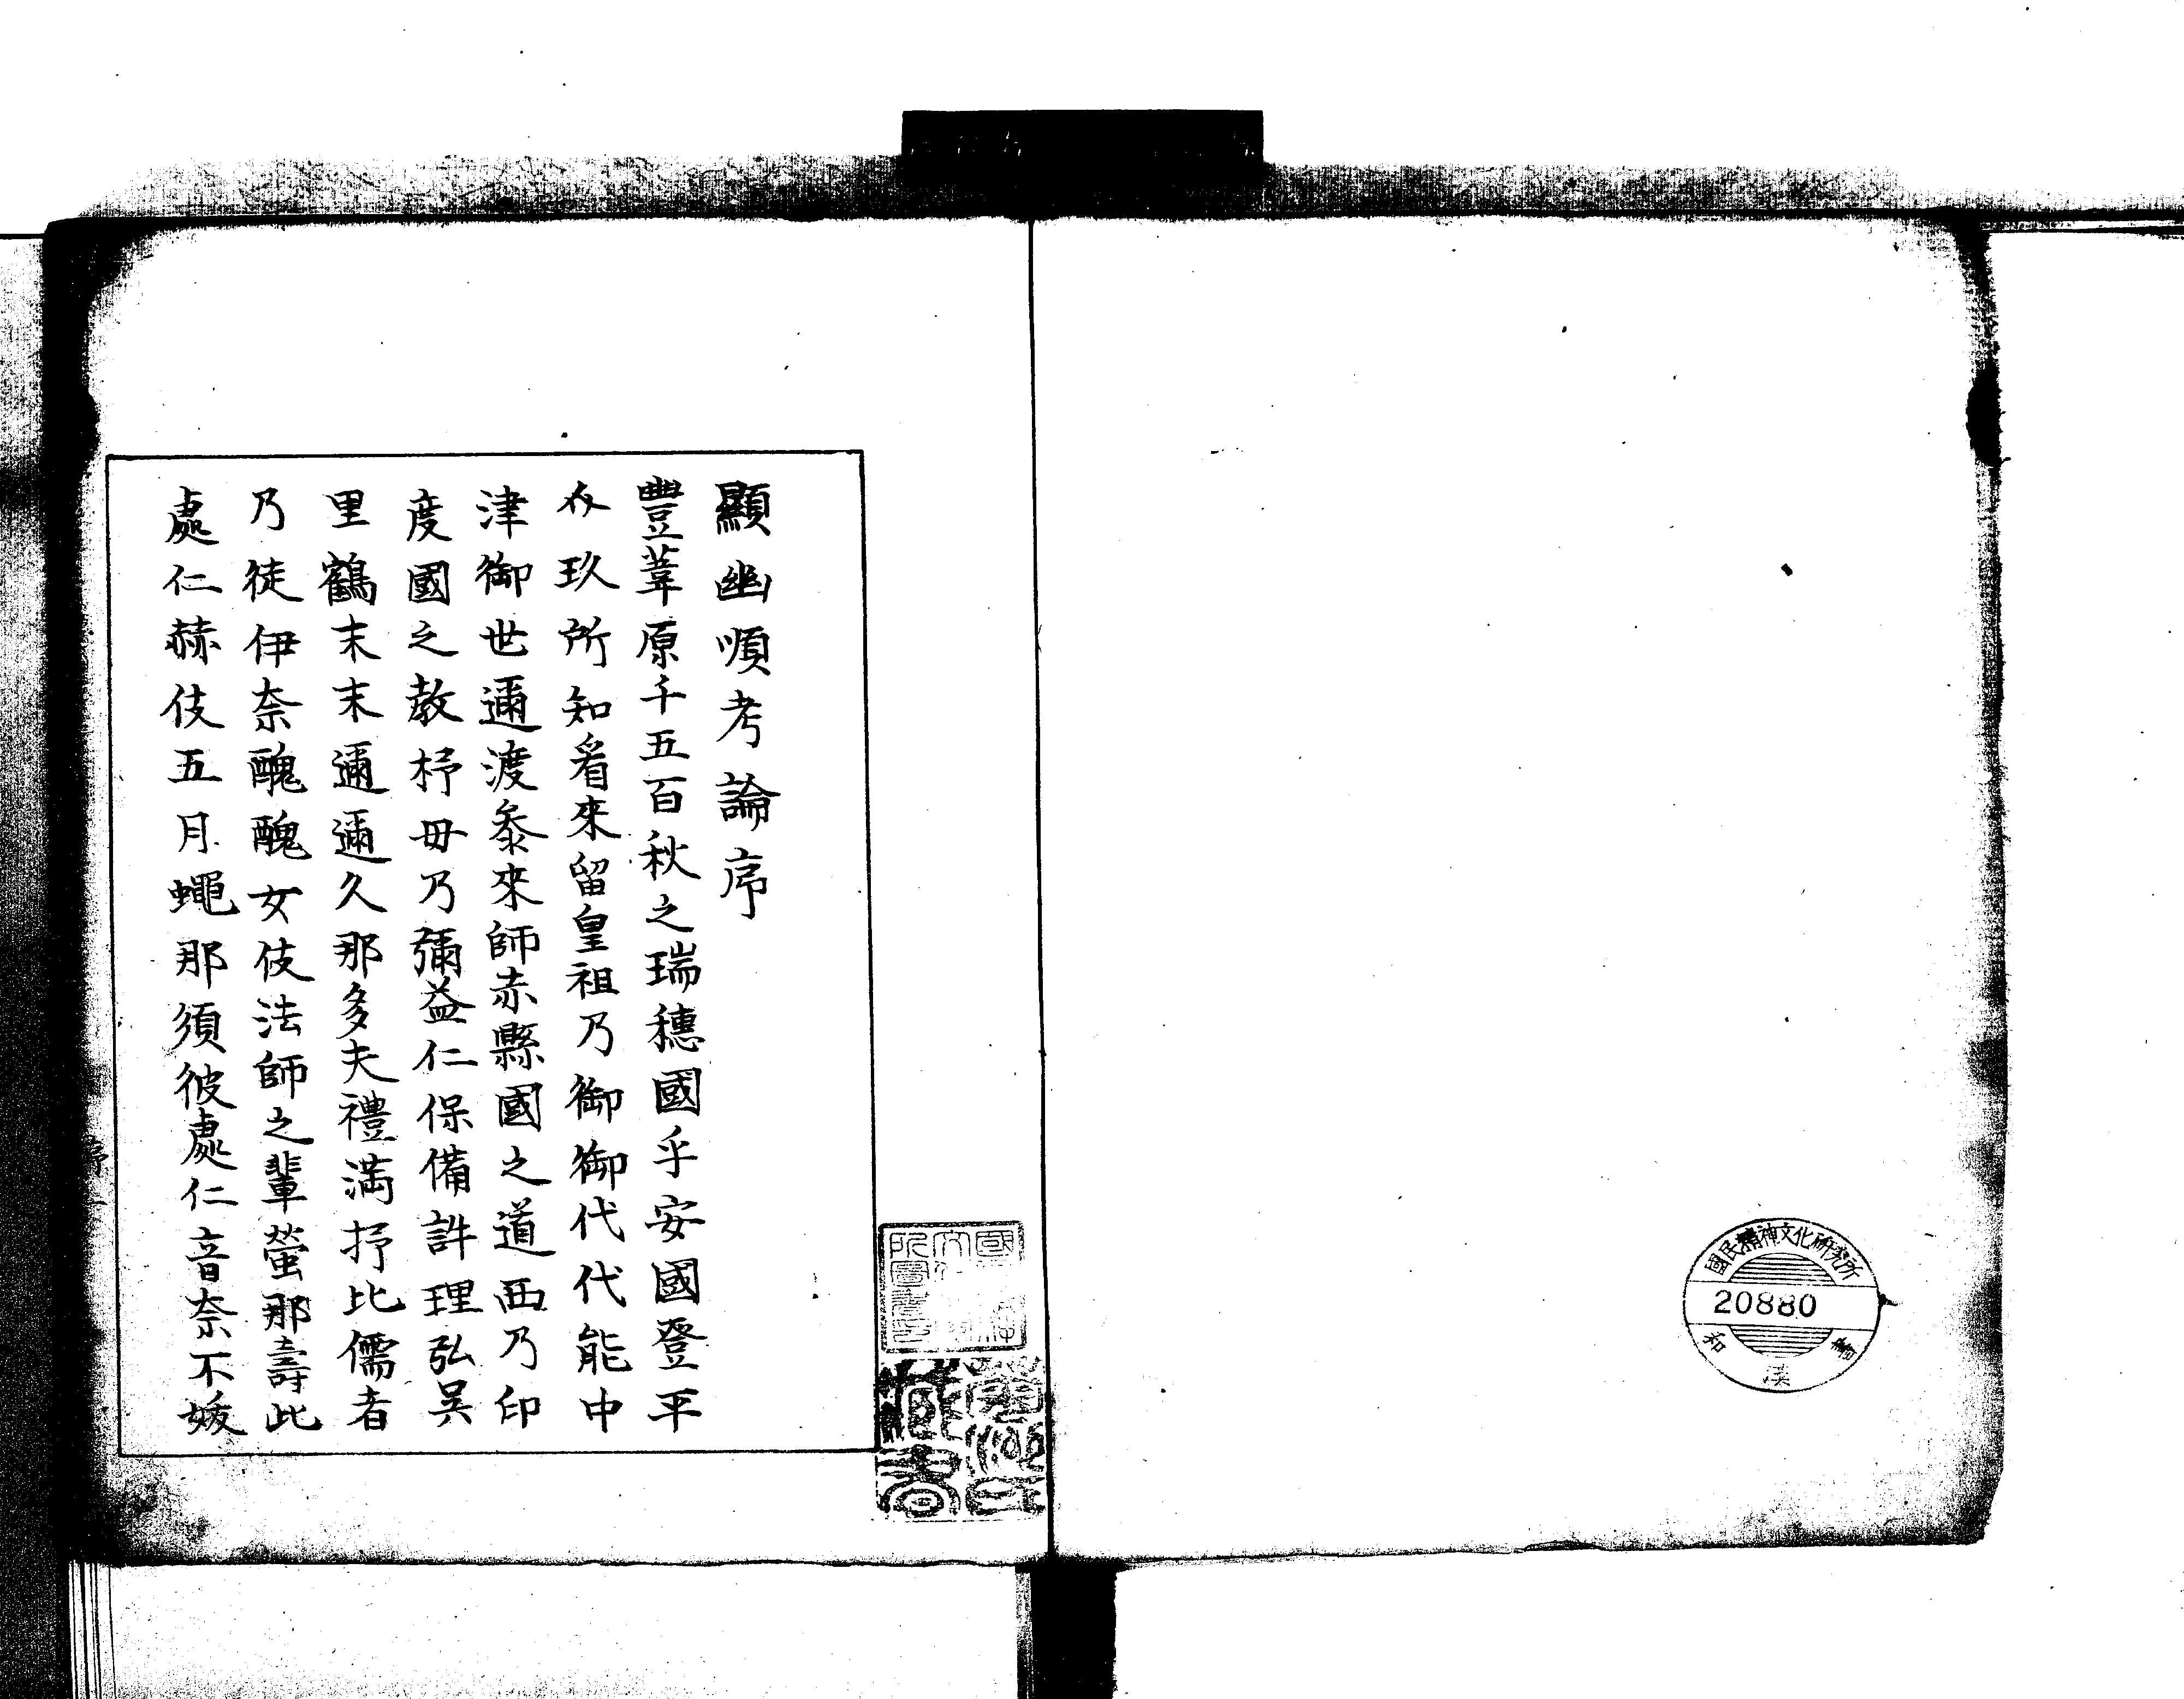 國民精神文化研究所
20880
顯幽順考論序
豐葦原千五百秋之瑞穗國乎安國登平
介玖所知看來留皇祖乃御御代代能中
津御世邇渡參來師赤縣國之道西乃印
度國之教杼毋乃彌益仁保備許理弘吴
里鶴末末邇邇久那多夫禮滿抒比儒者
乃徒伊奈醜醜女伎法師之輩螢那壽此
處仁赫伎五月蠅那須彼處仁音奈不